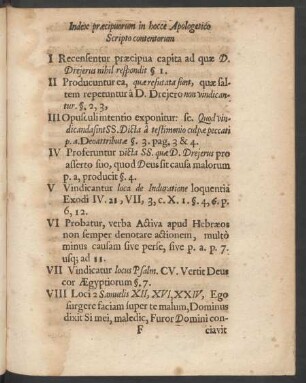 Index præcipuorum in hocce Apologetico
Scripto contentorum
I Recensentur præcipua capita ad quæ D.
Drejerus nihil respondit §. 1.
II Producuntur ea, quæ refutata sunt, quæ sal-
tem repetuntur à D. Drejero non vindican-
tur. §. 2, 3,
III Opusculi intentio exponitur: sc. Quod vin-
dicanda sint SS. Dicta à testimonio culpæ peccati
p. a. Deo attributæ §. 3. pag. 3 & 4.
IV Proferuntur dicta SS. quæ D. Drejerus pro
asserto suo, quod Deus sit causa malorum
p. a, producit §. 4.
V Vindicantur loca de Induratione loquentia
Exodi IV. 21, VII, 3, c. X. 1. §. 4, 6. p.
6, 12.
VI Probatur, verba Activa apud Hebræos
non semper denotare actionem, multò
minus causam sive per se, sive p. a. p. 7.
usq; ad 11.
VII Vindicatur locus Psalm. CV. Vertit Deus
cor Ægyptiorum §. 7.
VIII Loci 2 Samuelis XII, XVI, XXIV, Ego
surgere faciam super te malum, Dominus
dixit Simei, maledic, Furor Domini con-
F ciavit